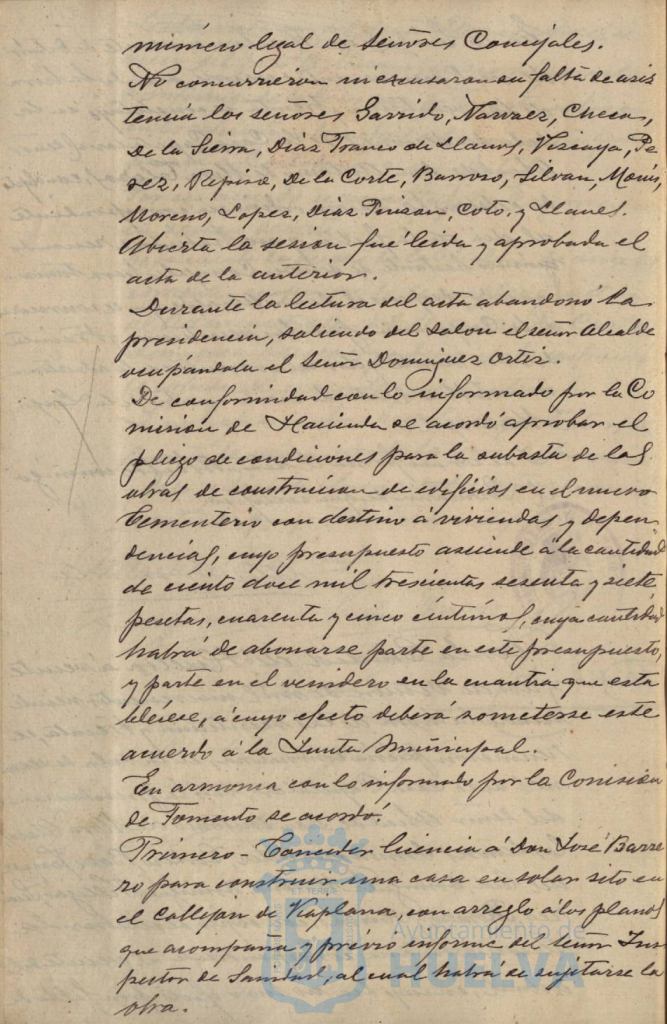 número legal de Señores Concejales.
No concurrieron ni escusaron su falta de asis
tencia los señores Garrido, Narvaez, Checa,
De la Sierra, Díaz Franco de Llanos, Vizcaya, Pe
rez, Repiso, De la Corte, Barroso, Silvan, Monís,
Moreno, Lopez, Diaz Pinzon, Coto y Llanes.
Abierta la sesion fué leida y aprobada el
acta de la anterior.
Durante la lectura del acta abandonó la
presidencia, saliendo del salon el señor Alcalde
ocupándola el Señor Dominguez Ortiz.
De conformidad con lo informado por la Co
mision de Hacienda se acordó aprobar el
pliego de condiciones para la subasta de las
obras de construccion de edificios en el nuevo
Cementerio con destino á viviendas y depen
dencias, cuyo presupuesto asciende á la cantidad
de ciento doce mil trescientas sesenta y siete
pesetas, cuarenta y cinco céntimos, cuya cantidad
habrá de abonarse parte en este presupuesto,
y parte en el venidero en la cuantia que esta
bleciese, á cuyo efecto deberá someterse este
acuerdo á la Junta Municipal.
En armonia con lo informado por la Comision
de Fomento se acordó:
Primero - Conceder licencia á Don José Barre
ro para construir una casa en solar sito en
el Callejon de Kaplana, con arreglo á los planos
que acompaña y prévio informe del señor Ins
pector de Sanidad, al cual habrá de sujetarse la
obra.
Ayuntamiento de
HUELVA